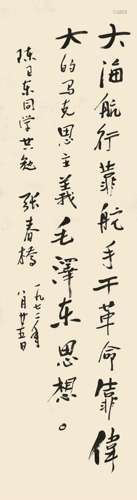 大海航行靠航手干革命靠偉
大的马克思主義毛澤东思想。
陈卫东同学共勉
張春橋
一九七二年
八月廿五日